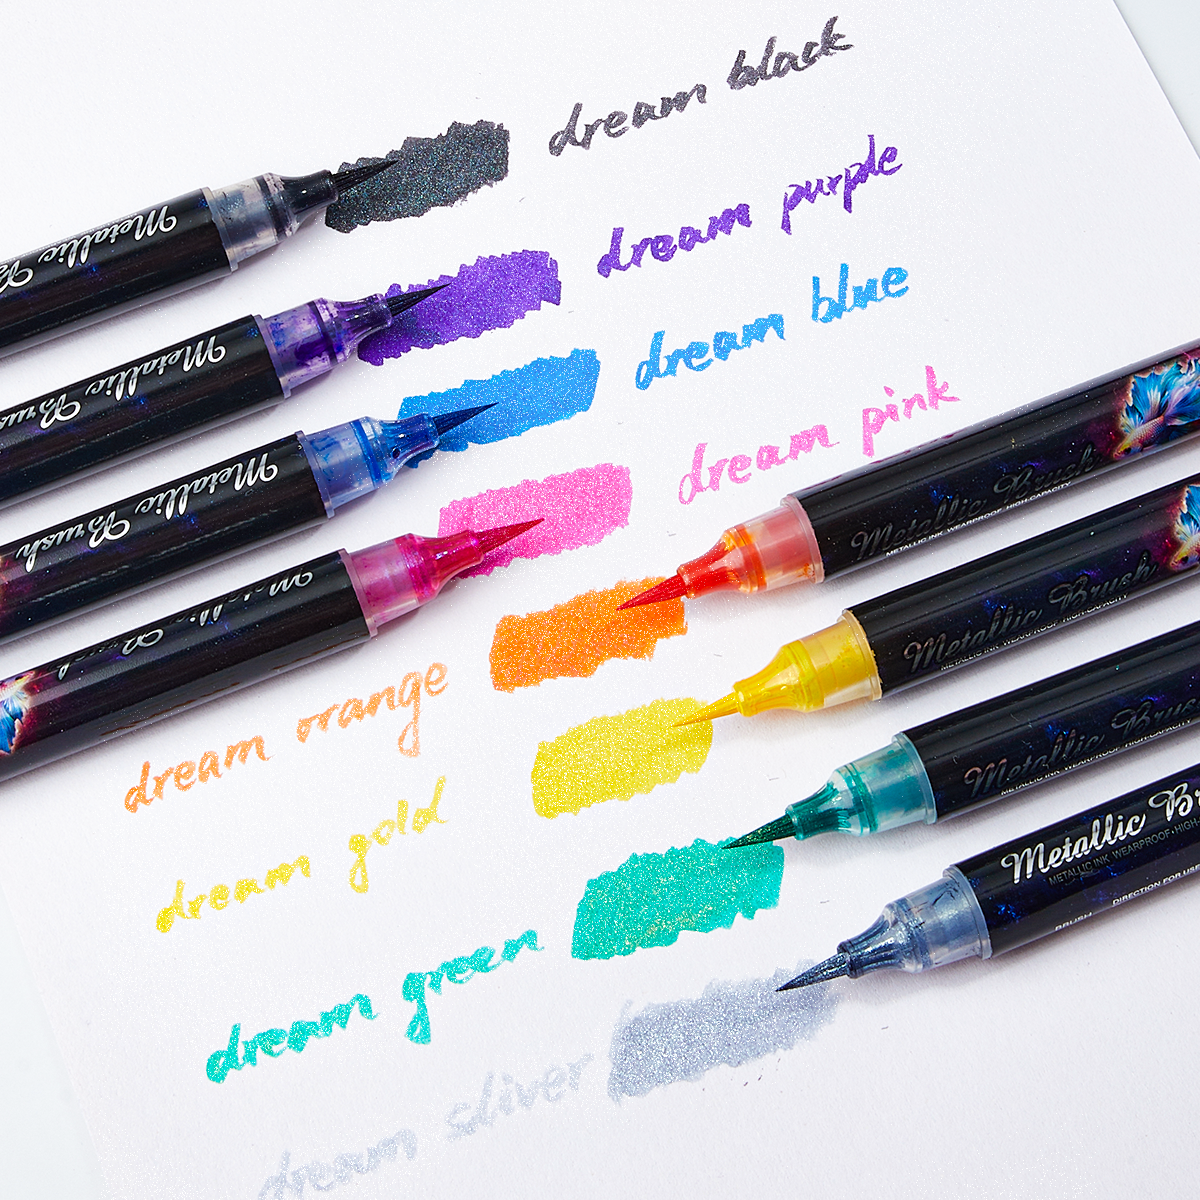 dream black
dream purple
dream blue
dream pink
dream orange
dream gold
dream green
dream sliver
Metallic
Metallic Brush
Metallic Brush
Metallic Brush
Metallic Brush
METALLIC INK WEARPROOF HIGH-CAPACITY
Metallic Brush
METALLIC INK WEARPROOF HIGH-CAPACITY
Metallic Brush
METALLIC INK WEARPROOF HIGH-CAPACITY
Metallic Br
METALLIC INK WEARPROOF·HIGH-
BRUSH DIRECTION FOR USE